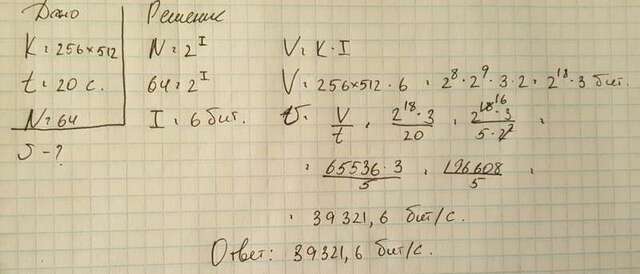 Дано
K = 256×512
t = 20 с.
N = 64
υ - ?
Решение
N = 2^I
64 = 2^I
I = 6 бит.
V = K · I
V = 256×512 · 6 = 2^8 · 2^9 · 3 · 2 = 2^18 · 3 бит.
υ = V/t = 2^18 · 3/20 = 2^16 · 3/5 · 2^2 =
= 65536 · 3/5 = 196608/5 =
= 39321,6 бит/с.
Ответ: 39321,6 бит/с.